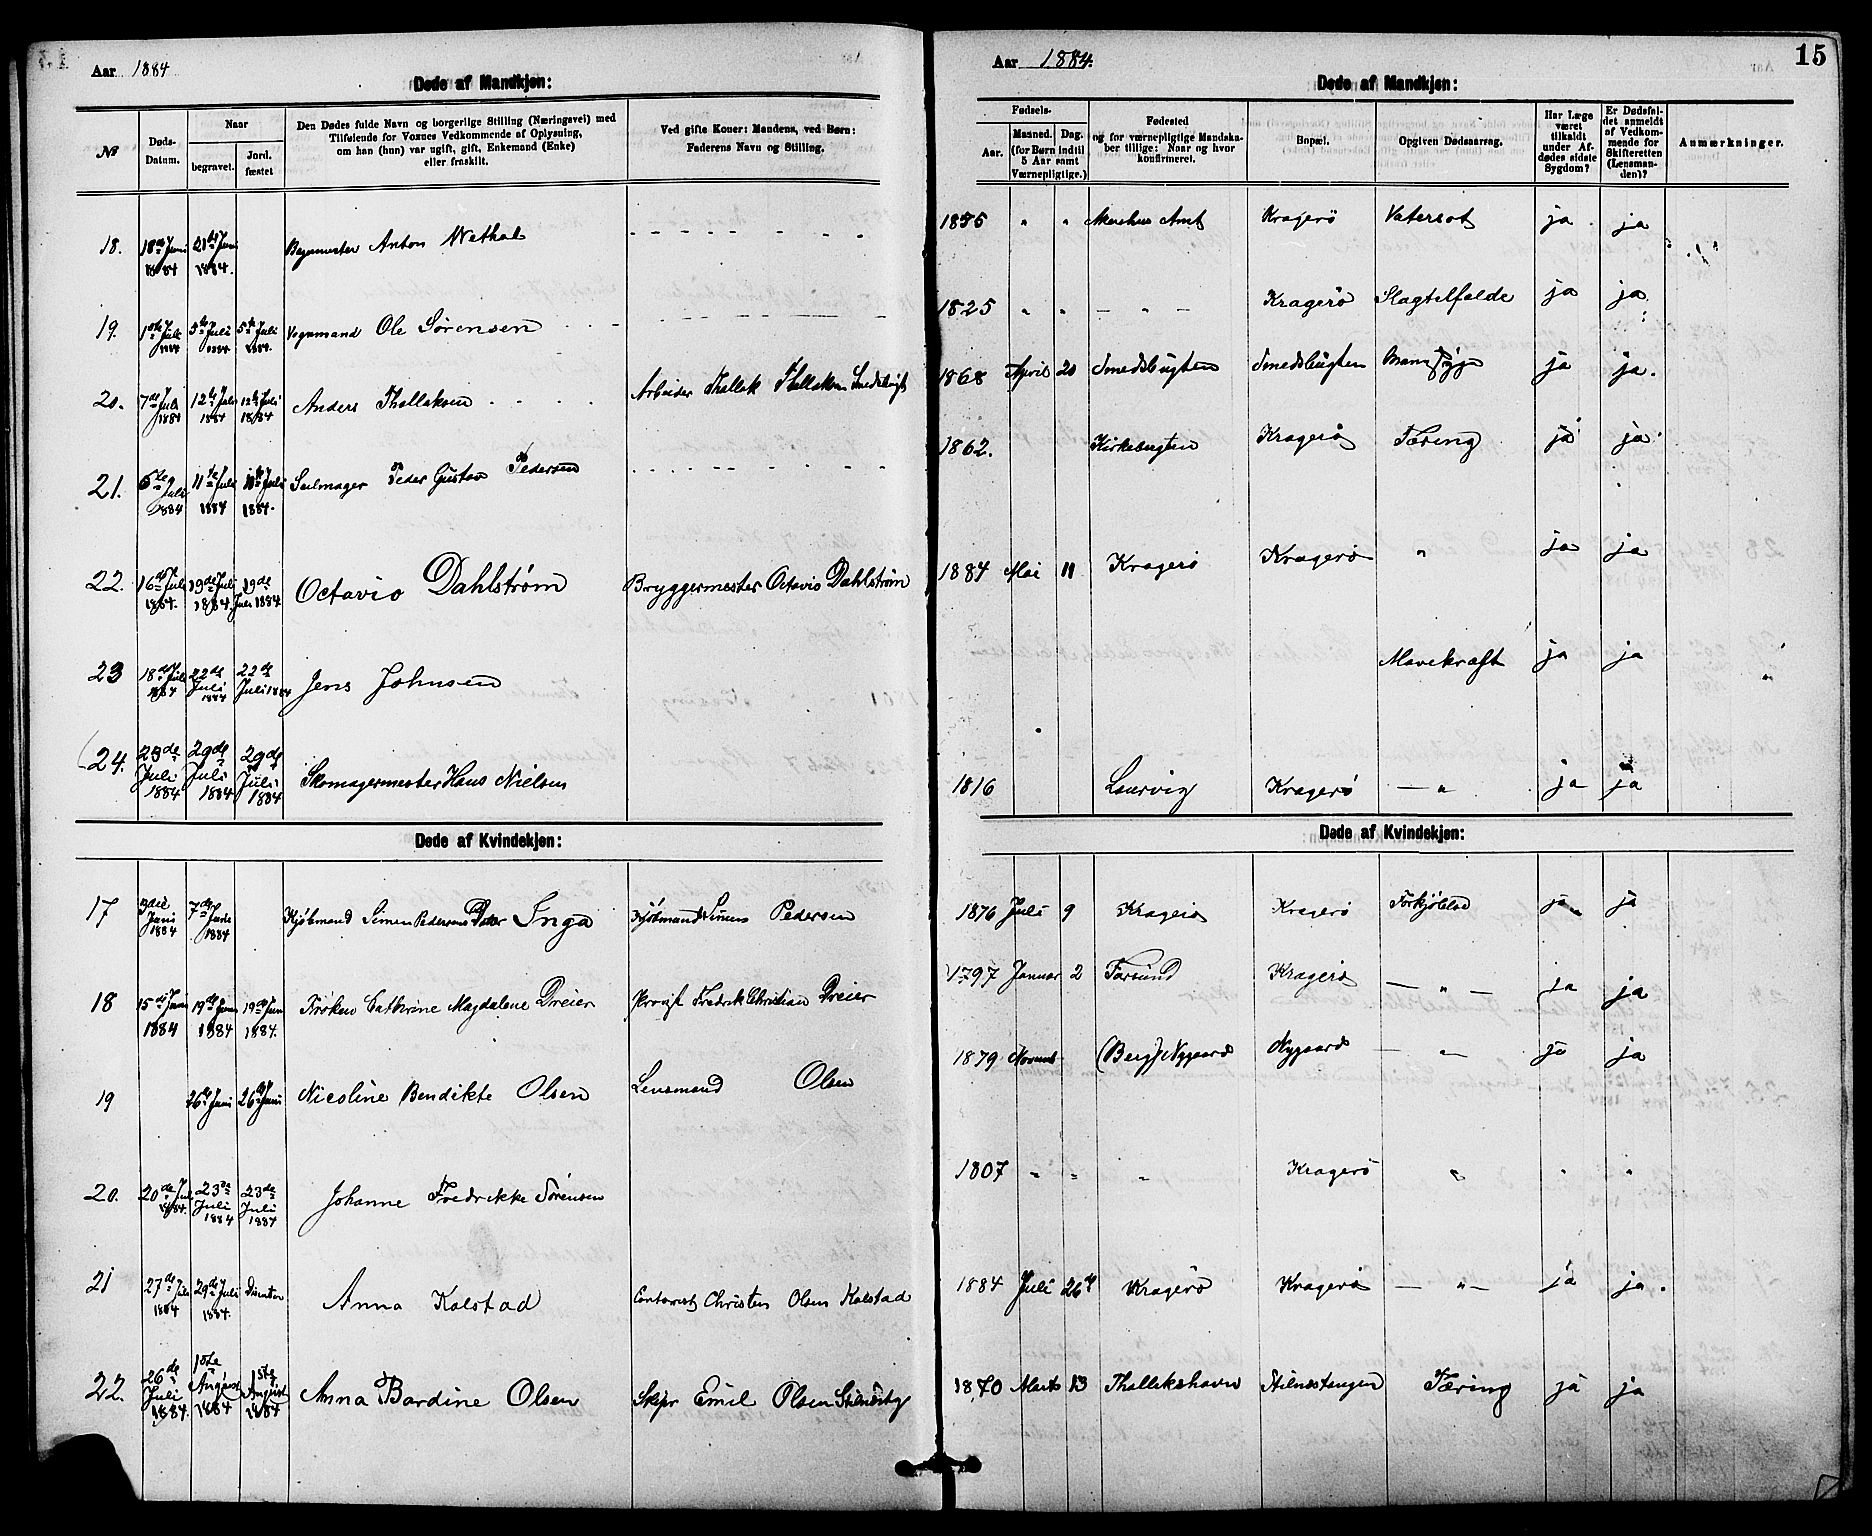 Aar 1884
Døde af Mandkjøn:
№
Døds-Datum.
Naar
begravet.
Jord. fæstet
Den Dødes fulde Navn og borgerlige Stilling (Næringsvei) med
Tilføiende for Voxnes Vedkommende af Oplysning,
om han (hun) var ugift, gift, Enkemand (Enke)
eller fraskilt.
Ved gifte Koner: Mandens, ved Børn:
Faderens Navn og Stilling.
18. 18de Juni 1884 21de Juni 1884. Anton Wethal
19. 1ste Juli 1884 5te Juli 1884 5te Juli 1884. Vognmand Ole Sørensen
20. 7de Juli 1884 12te Juli 1884 12te Juli 1884 Anders Thollaksen Arbeider Thollak Thollaksen
21. 6de Juli 1884 11te Juli 1884 11te Juli 1884. Seilmager Peder Gustav Pedersen
22. 16de Juli 1884. 19de Juli 1884. 19de Juli 1884 Octavio Dahlstrøm Bryggermester Octavio Dahlstrøm
23 18de Juli 1884 22de Juli 1884 22de Juli 1884 Jens Johnsen
24. Juli 1884 29de Juli 1884 29de Juli 1884 Skomagermester Hans Nielsen
Døde af Kvindekjøn:
17 3die Juni 1884 7de Juni 1884 Kjøbmand Simen Pedersens Datter Inga Kjøbmand Simen Pedersen
18 15de Juni 1884 19de Juni 1884 19de Juni 1884. Frøken Cathrine Magdalene Dreier Provst Fredrik Christian Dreier
19 26de Juni 26de Juni Nicoline Bendikte Olsen Lensmand Olsen
20. 20de Juli 1884. 23de Juli 1884 23de Juli 1884 Johanne Fredrikke Sørensen
21 27de Juli 1884 29de Juli 1884. Anna Kolstad Contorist Christen Olsen Kolstad
22. 26de Juli 1884. 1ste August 1884 1ste August 1884 Anna Bardine Olsen Skipr Emil Olsen
15
Aar 1884.
Døde af Mandkjøn:
Fødsels-
Aar.
Maaned. Dag.
(for Børn indtil
5 Aar samt
Værnepligtige.)
Fødested
og for værnepligtige Mandska-
ber tillige: Naar og hvor
konfirmeret.
Bopæl.
Opgiven Dødsaarsag.
Har Læge
været
tilkaldt
under Af-
dødes sidste
Sygdom?
Er Dødsfal-
det anmeldt
af Vedkom-
mende for
Skifteretten
(Lensman-
den)?
Anmærkninger.
" " Akershus Amt Kragerø Vatersot ja ja
1825 " " – " – Kragerø Slagtilfælde ja ja
1868 April 20 Smedsbugten Smedsbugten ja ja.
1862. Kirkebugten Kragerø Tæring ja ja
1884 Mai 11 Kragerø Kragerø " ja ja
Mavekræft ja ja
1816 Laurvig Kragerø — " ja ja
Døde af Kvindekjøn:
1876 Juli 9 Kragerø Kragerø ja ja
1797 Januar 2 Farsund Kragerø — " — ja ja
1879 Novemb (Berg) Nygaard Nygaard — " — ja ja
1807 " " " Kragerø " " "
1884 Juli 26de Kragerø Kragerø — " — ja ja.
1870 Marts 13 Thollekshavn Stilnestangen Tæring ja ja